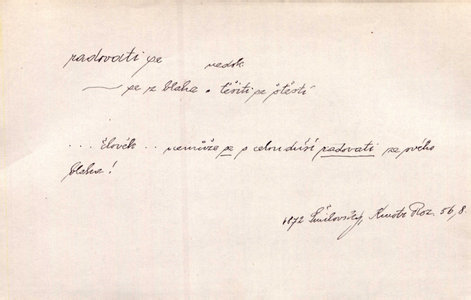 radovati se nedok
se z blaha . těšiti se štěstí
... člověk .. nemůže se s celou duší radovati ze svého
blaha!
1872 Šmilovský, Kmotr Roz. 56,8.